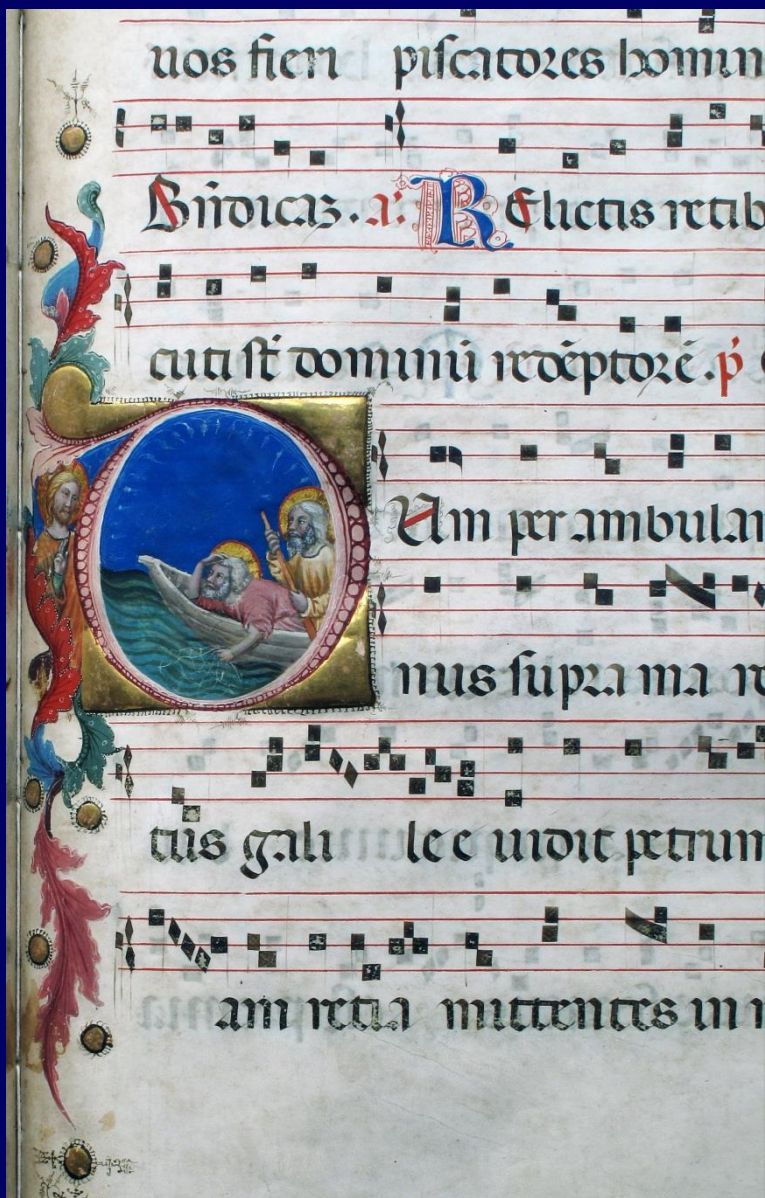 uos fieri piſcatores homin
Bñdicaꝫ. a. RElictis retib
cuti ſt̃ dominũ redẽptorẽ. p̃
DUm per ambula
nus ſupra ma re
tus gali lee uidit petrum
am retia mittentes in